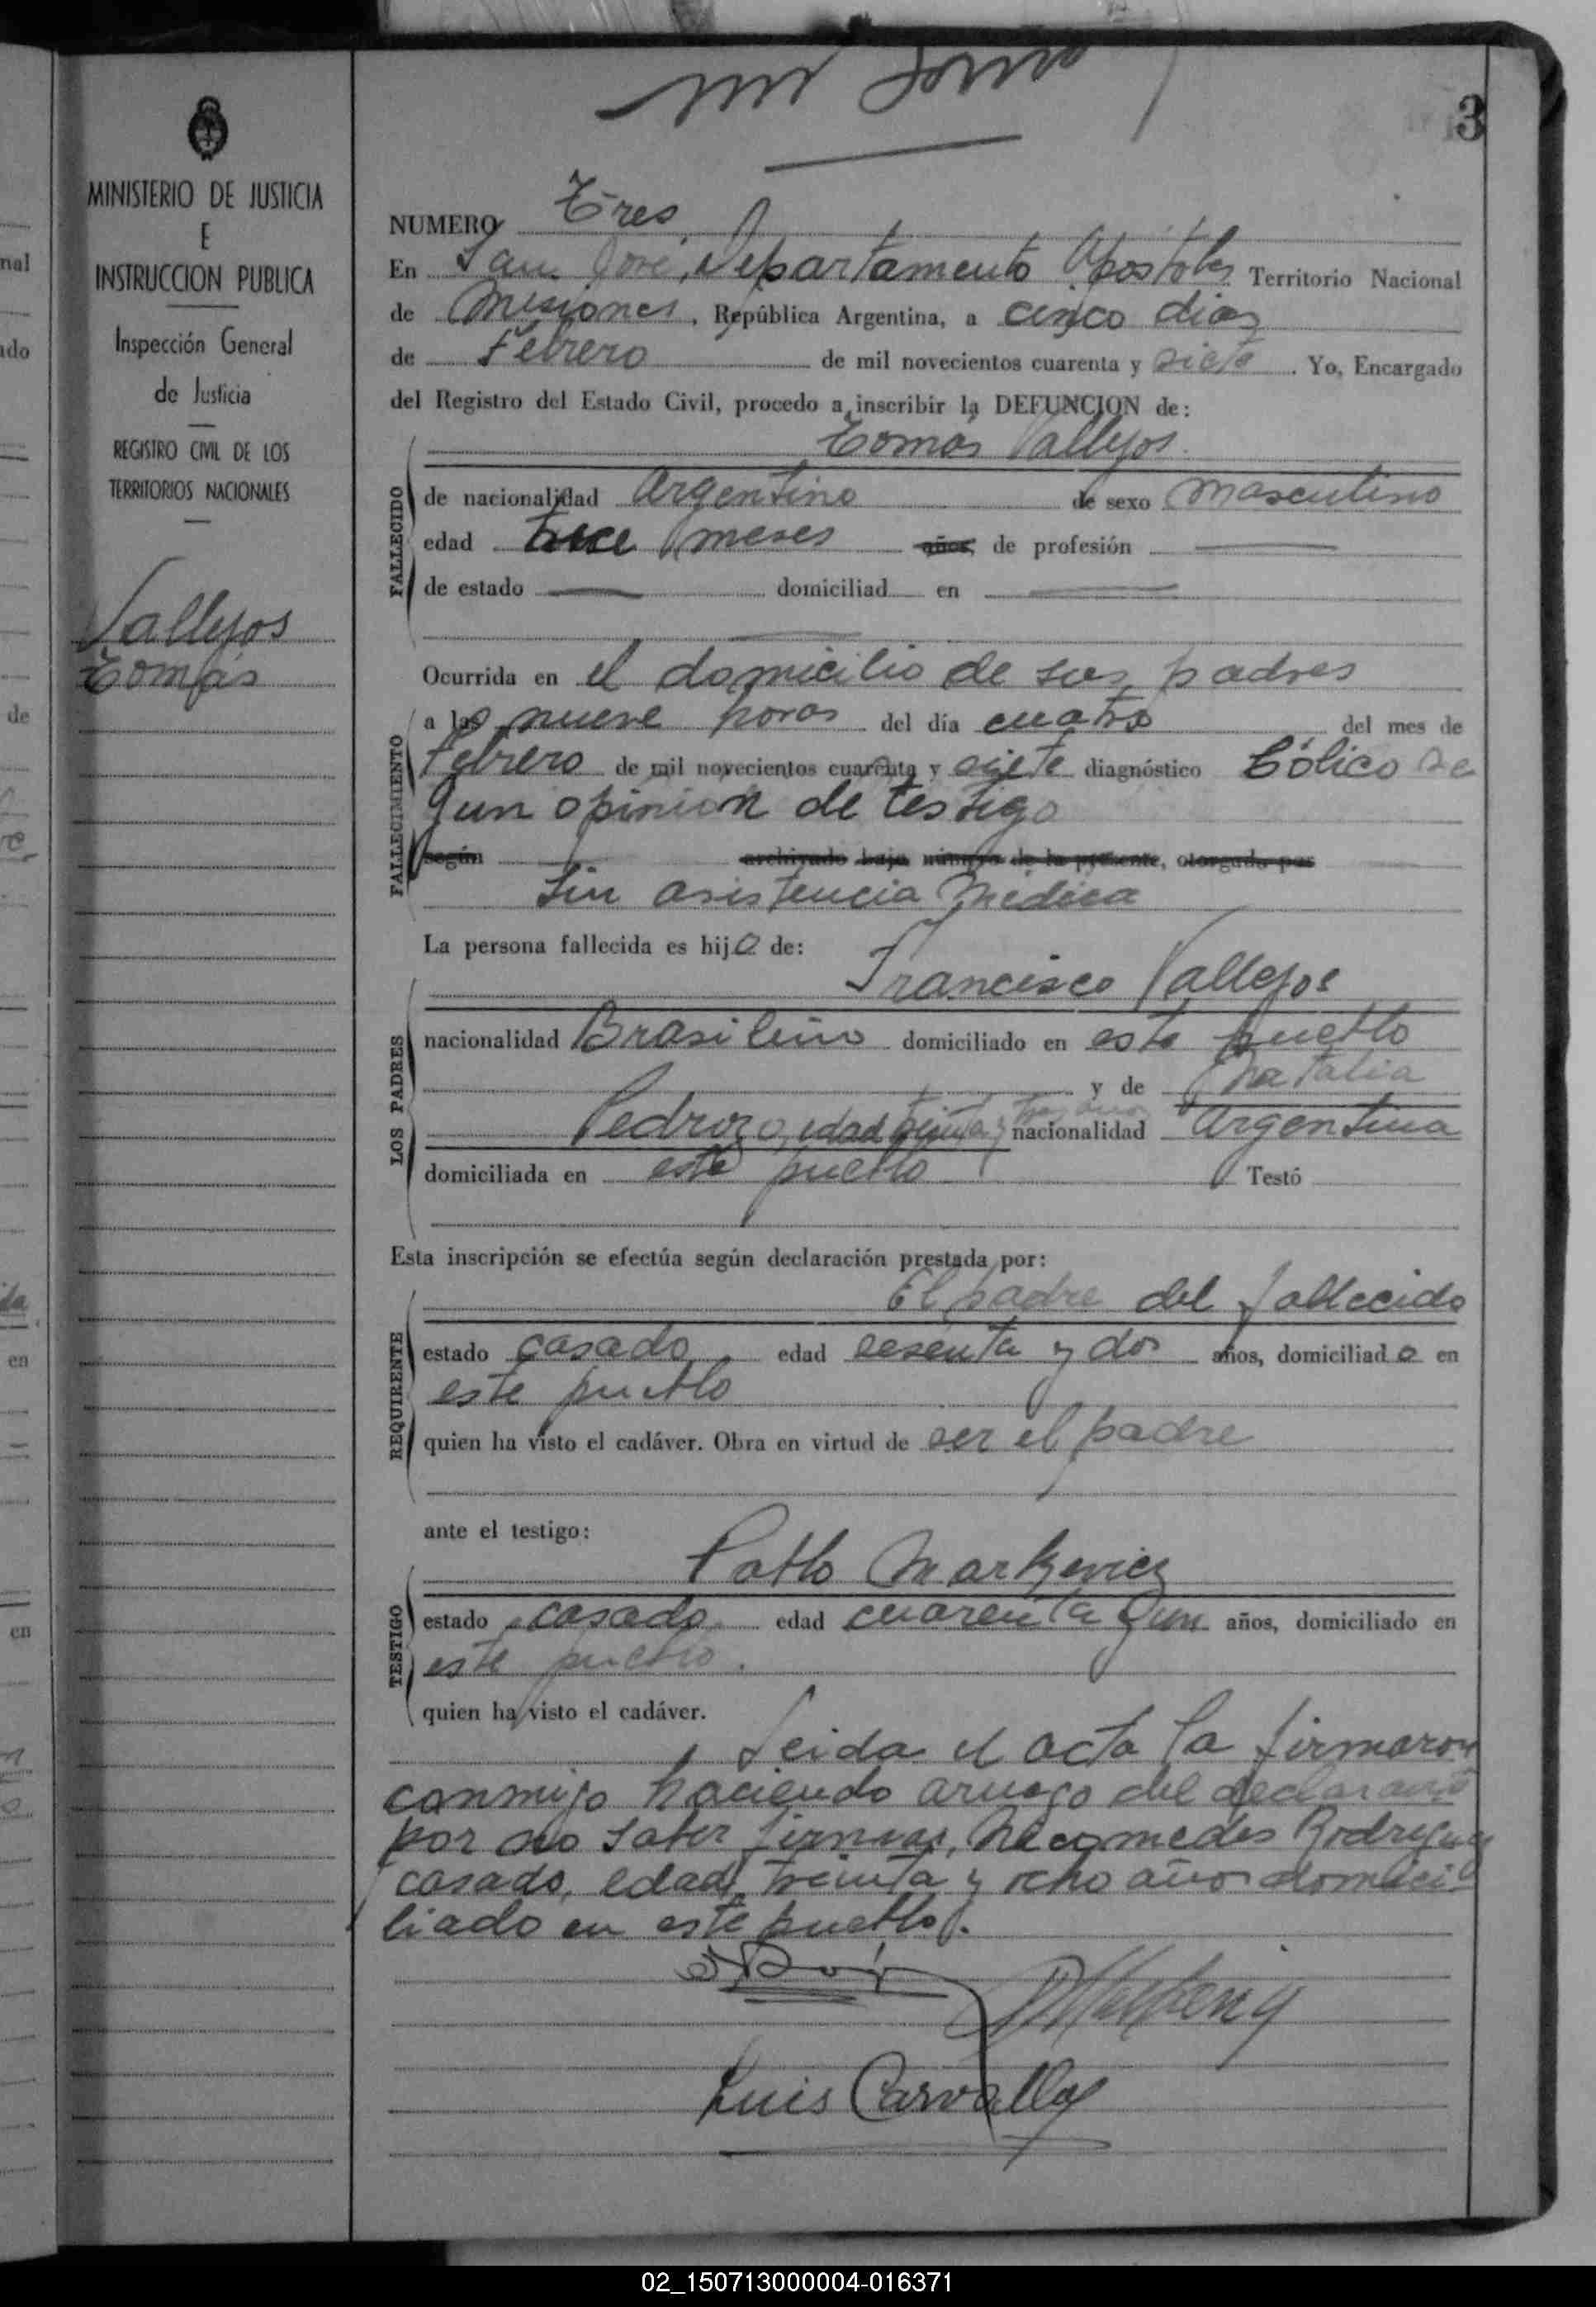 3
MINISTERIO DE JUSTICIA
E
INSTRUCCION PUBLICA
Inspección General
de Justicia
REGISTRO CIVIL DE LOS
TERRITORIOS NACIONALES
Vallejos
Tomás
NUMERO Tres
En San José, Departamento Apostoles Territorio Nacional
de Misiones, República Argentina, a cinco dias
de Febrero de mil novecientos cuarenta y siete. Yo, Encargado
del Registro del Estado Civil, procedo a inscribir la DEFUNCION de:
Tomás Vallejos.
FALLECIDO
de nacionalidad Argentino de sexo masculino
edad trece meses años, de profesión
de estado domiciliad en
Ocurrida en el domicilio de sus padres
FALLECIMIENTO
a las nueve horas del día cuatro del mes de
Febrero de mil novecientos cuarenta y siete diagnóstico Cólico se
gun opinion de testigo
según archivado bajo número de la presente, otorgado por
Sin asistencia Médica
La persona fallecida es hijo de:
Francisco Vallejos
LOS PADRES
nacionalidad Brasileño domiciliado en este pueblo
y de Natalia
Pedrozo, edad treinta y tres años nacionalidad Argentina
domiciliada en este pueblo Testó
Esta inscripción se efectúa según declaración prestada por:
El padre del fallecido
REQUIRENTE
estado casado edad sesenta y dos años, domiciliado en
este pueblo
quien ha visto el cadáver. Obra en virtud de ser el padre
ante el testigo:
Pablo Markevicz
TESTIGO
estado casado edad cuarenta y un años, domiciliado en
este pueblo.
quien ha visto el cadáver.
Leida el acta la firmaron
conmigo haciendo aruego del declarante
por no saber firmar, Necomedes Rodriguez
casado, edad treinta y ocho años domici-
liado en este pueblo.
Luis Carvallo
02_150713000004-016371